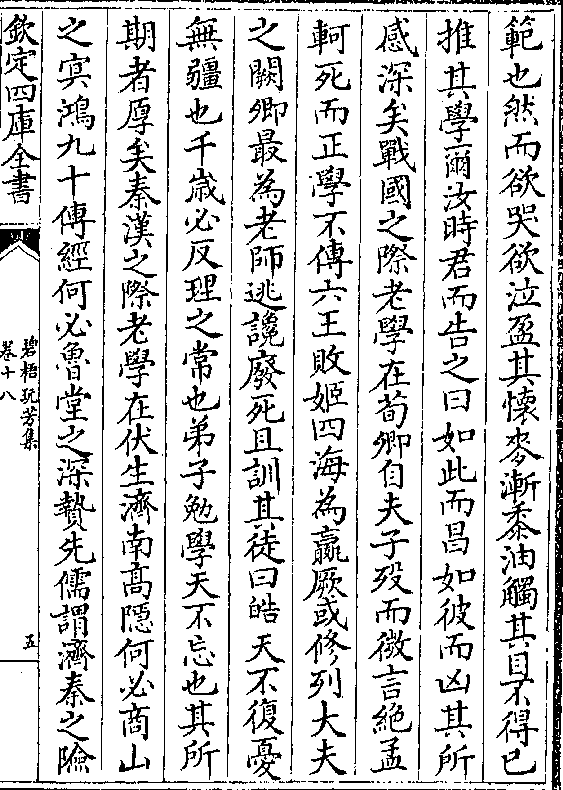 範也然而欲哭欲泣盈其懷麥漸黍油觸其目不得已
推其學爾汝時君而告之曰如此而昌如彼而凶其所
感深矣戰國之際老學在荀卿自夫子殁而微言絶孟
軻死而正學不傳六王敗姬四海為嬴厥或修列大夫
之闕卿最為老師逃讒廢死且訓其徒曰皓天不復憂
無疆也千嵗必反理之常也弟子勉學天不忘也其所
期者厚矣秦漢之際老學在伏生濟南髙隠何必商山
之㝠鴻九十傳經何必魯堂之深贄先儒謂濟秦之險
欽定四庫全書
碧梧玩芳集
卷十八
五